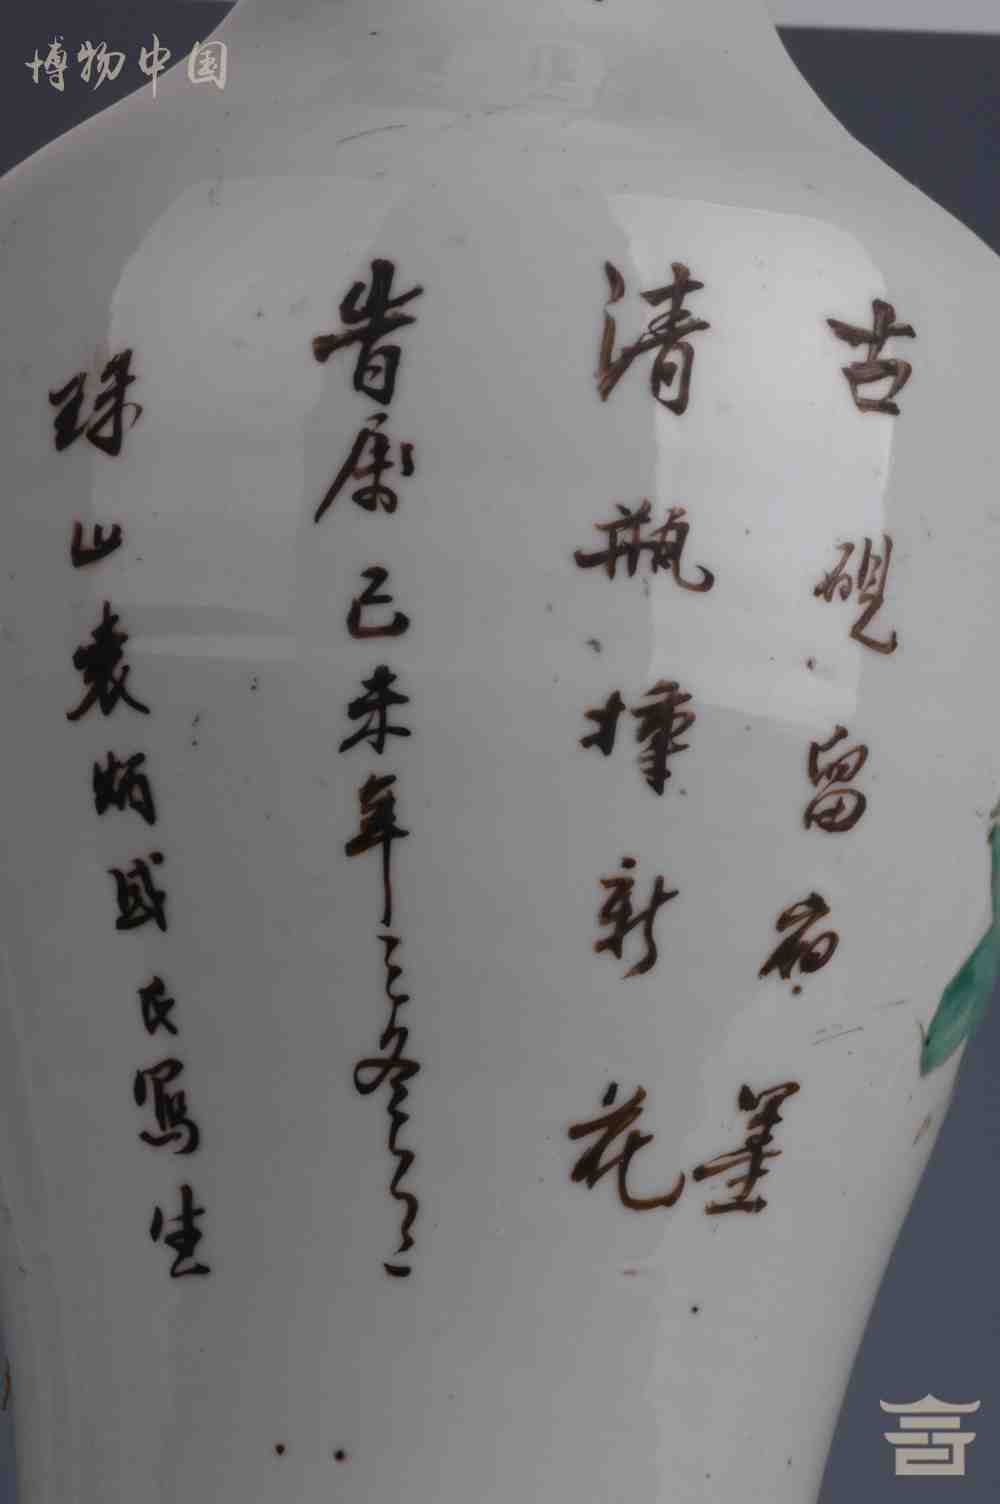 博物中国
古砚留宿墨
清瓶插新花
时属己未年之冬月
珠山袁炳盛氏写生